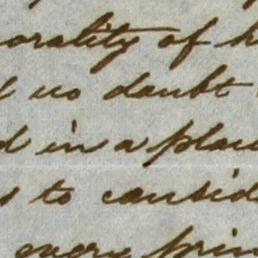 orality of h
no doubt
d in a plau
s to consid
every prin